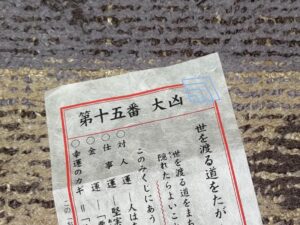 第十五番 大凶
世を渡る道をたが
世を渡る道をまち
隠れたらよいこ
このみくじにあう
○対人運―人は
○仕事運―堅実
○金運―
○幸運のカギ―